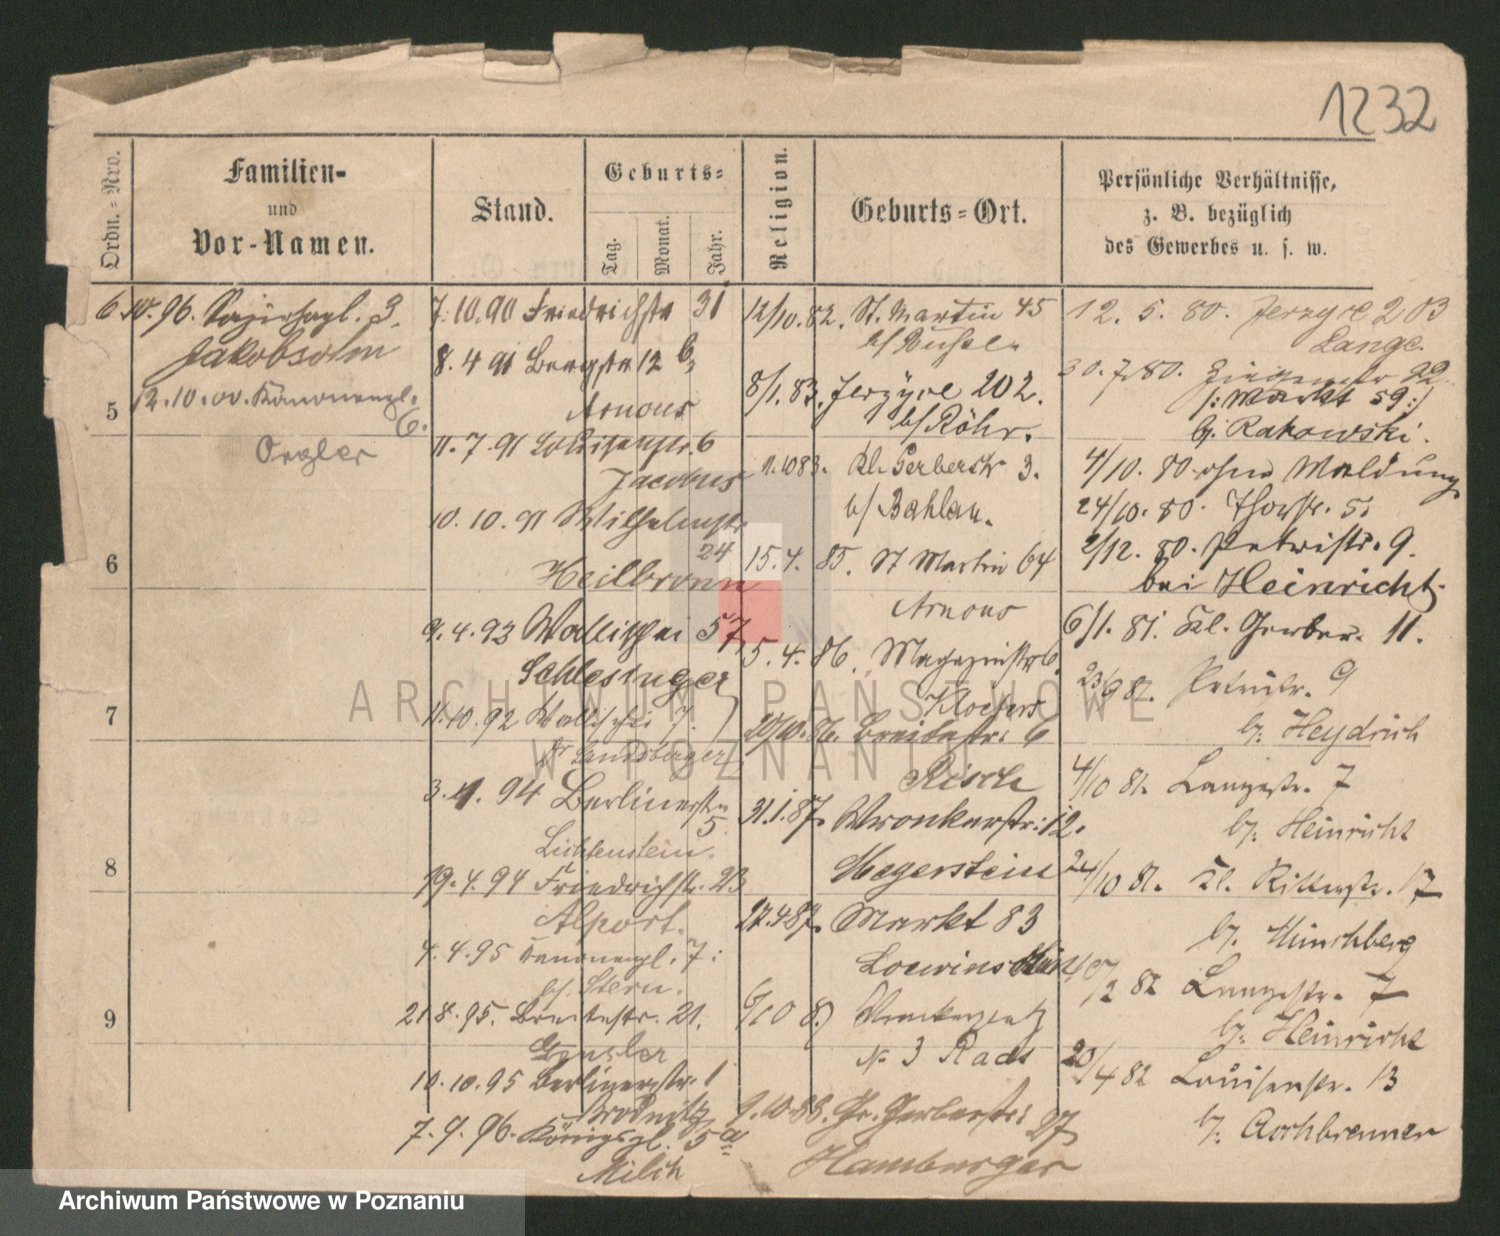 1232
Ordn.-Nro.
Familien-
und
Vor-Namen.
Stand.
Geburts-
Tag.
Monat.
Jahr.
Religion.
Geburts-Ort.
Persönliche Verhältnisse,
z. B. bezüglich
des Gewerbes u. s. w.
5
6
7
8
9
6.10.96. 3.
Jakobsohn
12.10.00. Kanonenpl.
6.
Orgler
7.10.90 Friedrichstr 31
8.4 91 Bergstr 12 b
Arnous
11.7.91 Louisenstr. 6
Jacobus
10.10.91 Wilhelmstr.
24
Heilbronn
9.4.93 Wallischei 57,
Schlesinger
11.10.92 Wallischei 7.
Landsberger
3. 94 Berlinerstr.
5.
Lichtenstein.
19.4.94 Friedrichstr. 23
Alport.
4.4.95 Kanonenpl. 7.
b/ Stern.
21.8.95. Breitestr. 21.
10.10.95 Berlinerstr. 1
Brodnitz
7.9.96. Königspl. 5a
Milch
12/10.82. St. Martin 45
8/1.83. Jerzyce 202.
b/ Röhr.
1.10 83. Kl. Gerberstr 3.
b/ Bahlau.
15.4.85. St Martin 64
Arnous
5.4.86. Magazinstr 6.
20/10.86. Breitestr: 6
Risch
31.1.87. Wronkerstr: 12.
Megerstein
27.4 87. Markt 83
6/10 8
№ 3 Rads
9.10.88. Gr. Gerberstr: 27
Hamburger
12.5.80. Jerzyce 203
Lange.
30.7.80. Ziegenstr 22
/: Markt 59 :/
bj. Rakowski.
4/10.80 ohne Meldung
24/10.80. Thorstr. 5.
2/12.80. Petristr. 9.
bei Heinricht.
6/1.81. Kl. Gerber. 11.
23/9 81. Petristr. 9
bj. Heydrich
4/10 81. Langestr. 7
bj. Heinricht
24/10 81. Kl. Ritterstr. 17
bj. Münchberg
2 82 Langestr. 7
bj. Heinricht
20/4 82 Louisenstr. 13
bj. Aschbrenner
ARCHIWUM PAŃSTWOWE
W POZNANIU
Archiwum Państwowe w Poznaniu